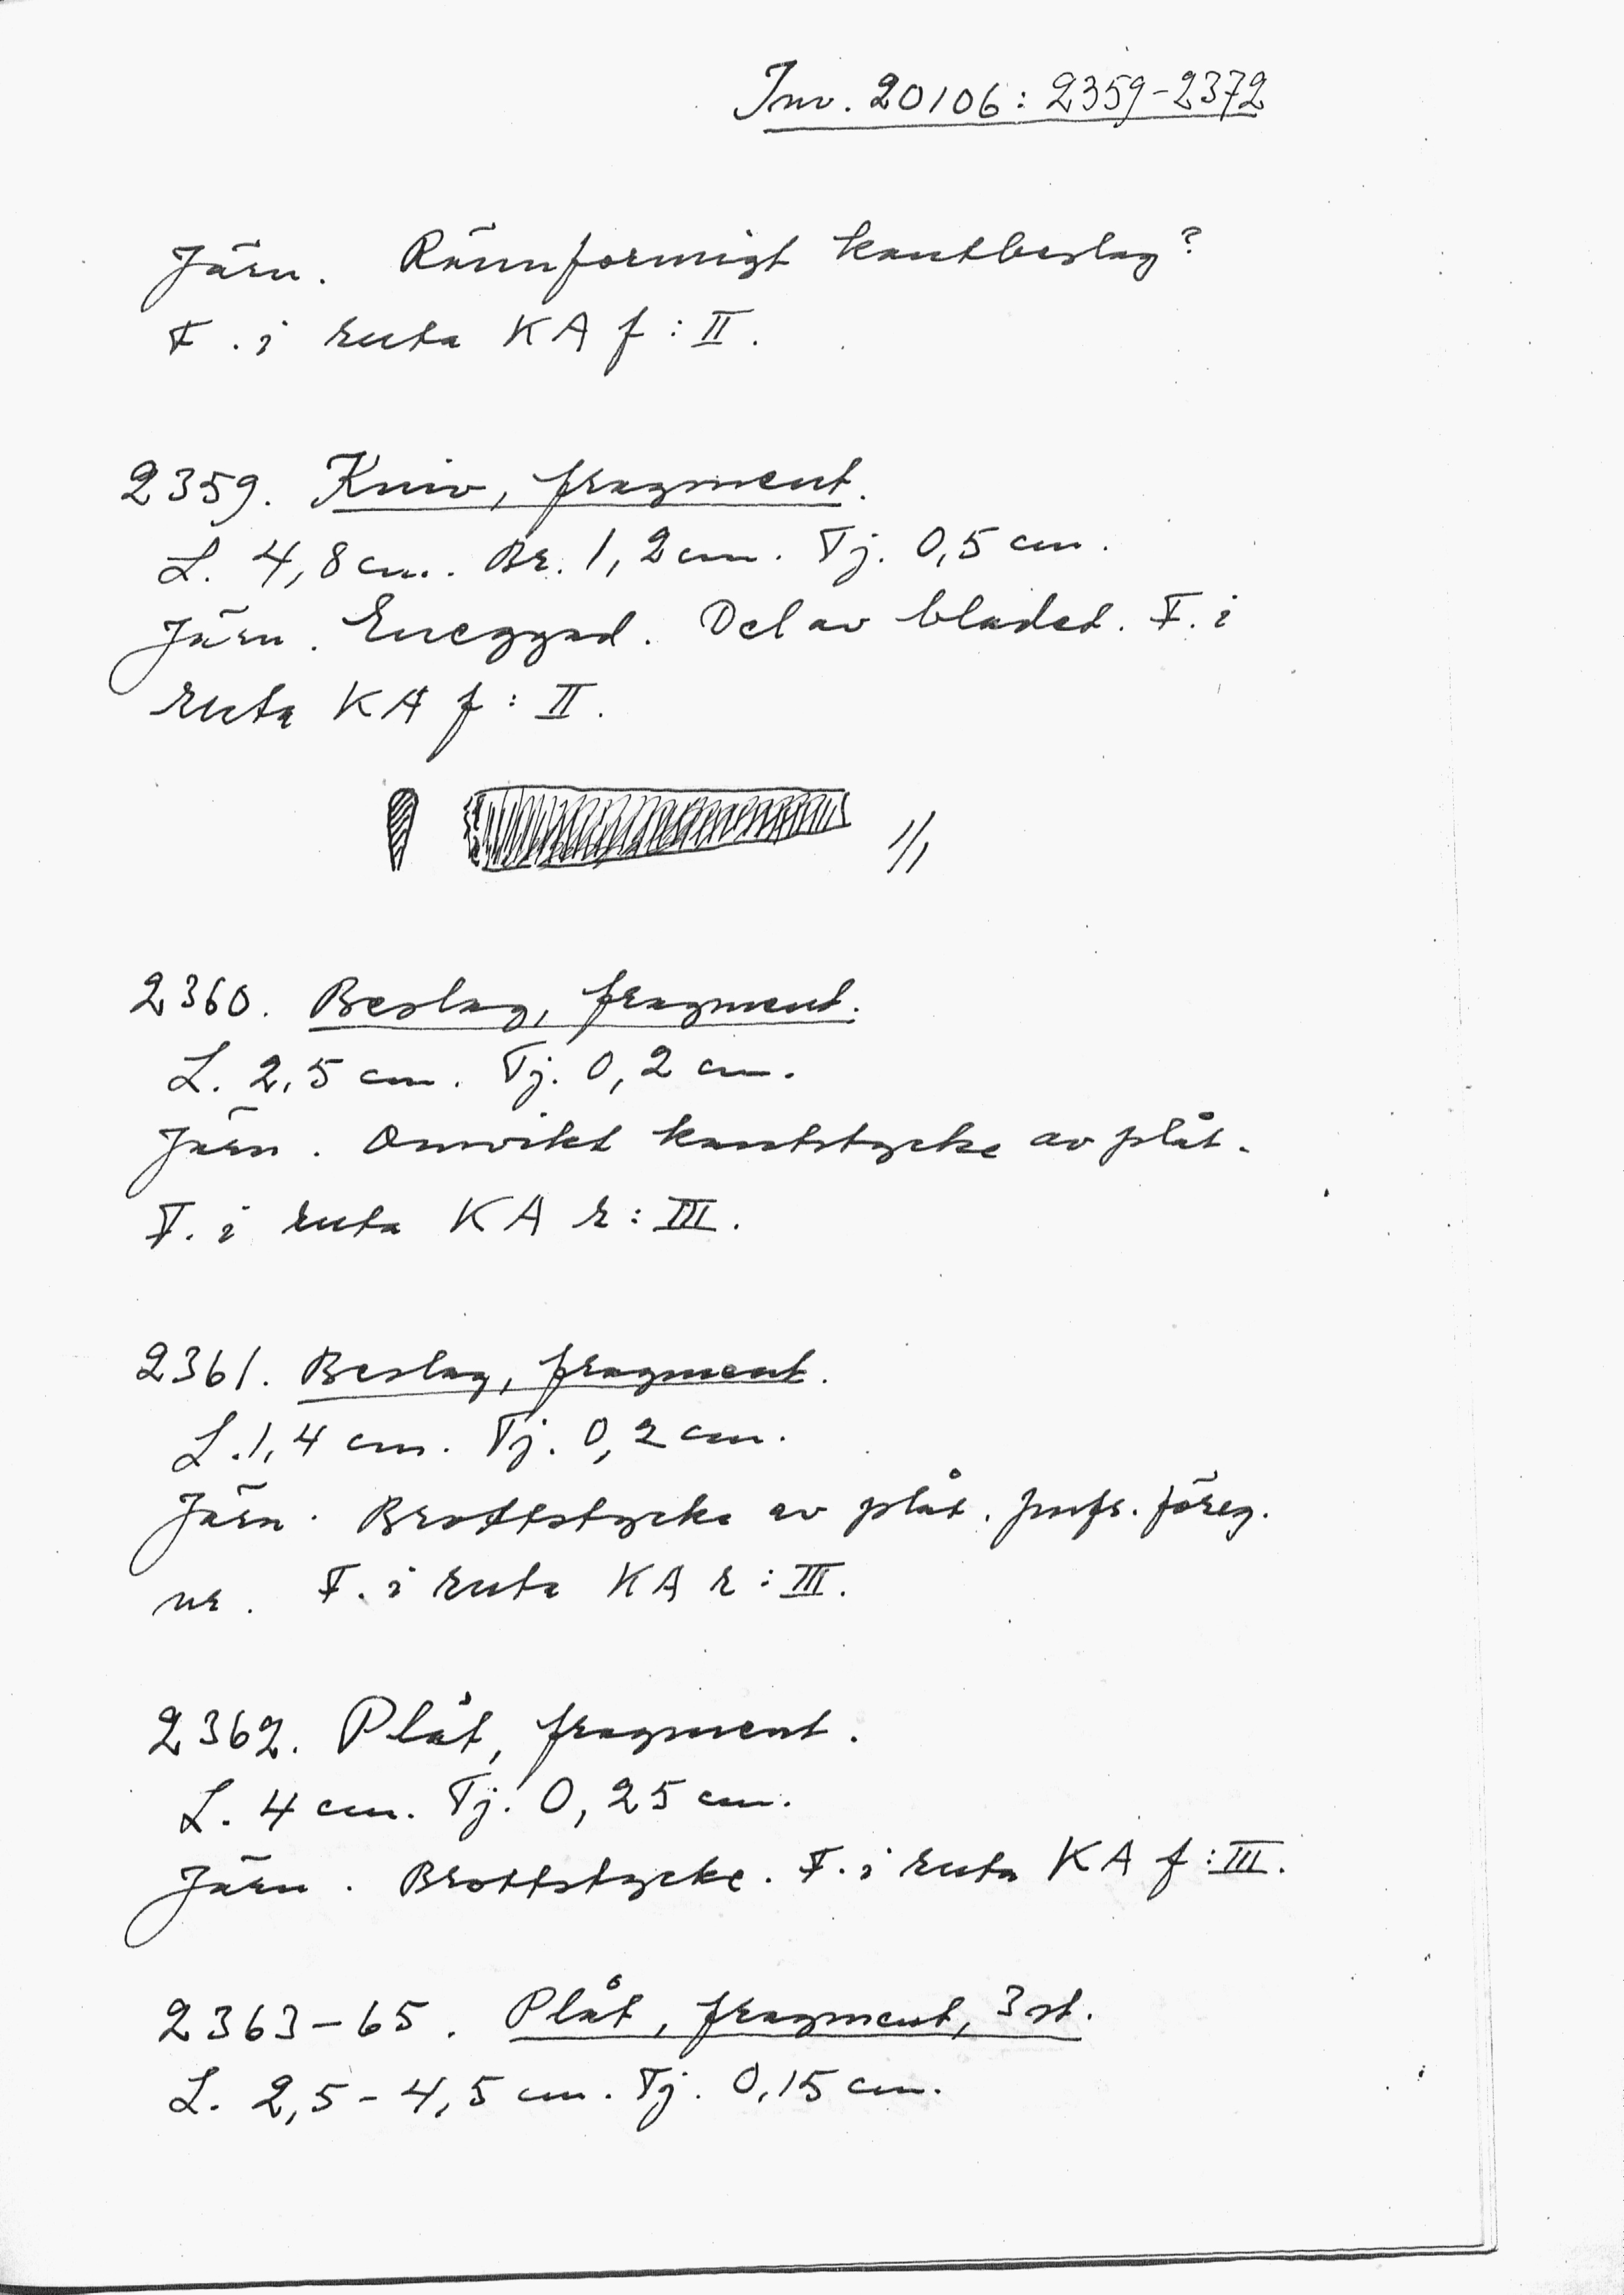 Inv. 20106: 2359-2372
Järn. Rännformigt kantbeslag?
F. i ruta KA f: II.
2359. Kniv, fragment.
L. 4,8 cm. Br. 1,2 cm. Tj. 0,5 cm.
Järn. Eneggad. Del av bladet. F. i
ruta KA f: II.
1/1
2360. Beslag, fragment.
L. 2,5 cm. Tj. 0,2 cm.
Järn. Omvikt kantstycke av plåt.
F. i ruta KA r: III.
2361. Beslag, fragment.
L. 1,4 cm. Tj. 0,2 cm.
Järn. Brottstycke av plåt. Jmfr. föreg.
nr. F. i ruta KA r: III.
2362. Plåt, fragment.
L. 4 cm. Tj. 0,25 cm.
Järn. Brottstycke. F. i ruta KA f: III.
2363-65. Plåt, fragment, 3 st.
L. 2,5-4,5 cm. Tj. 0,15 cm.